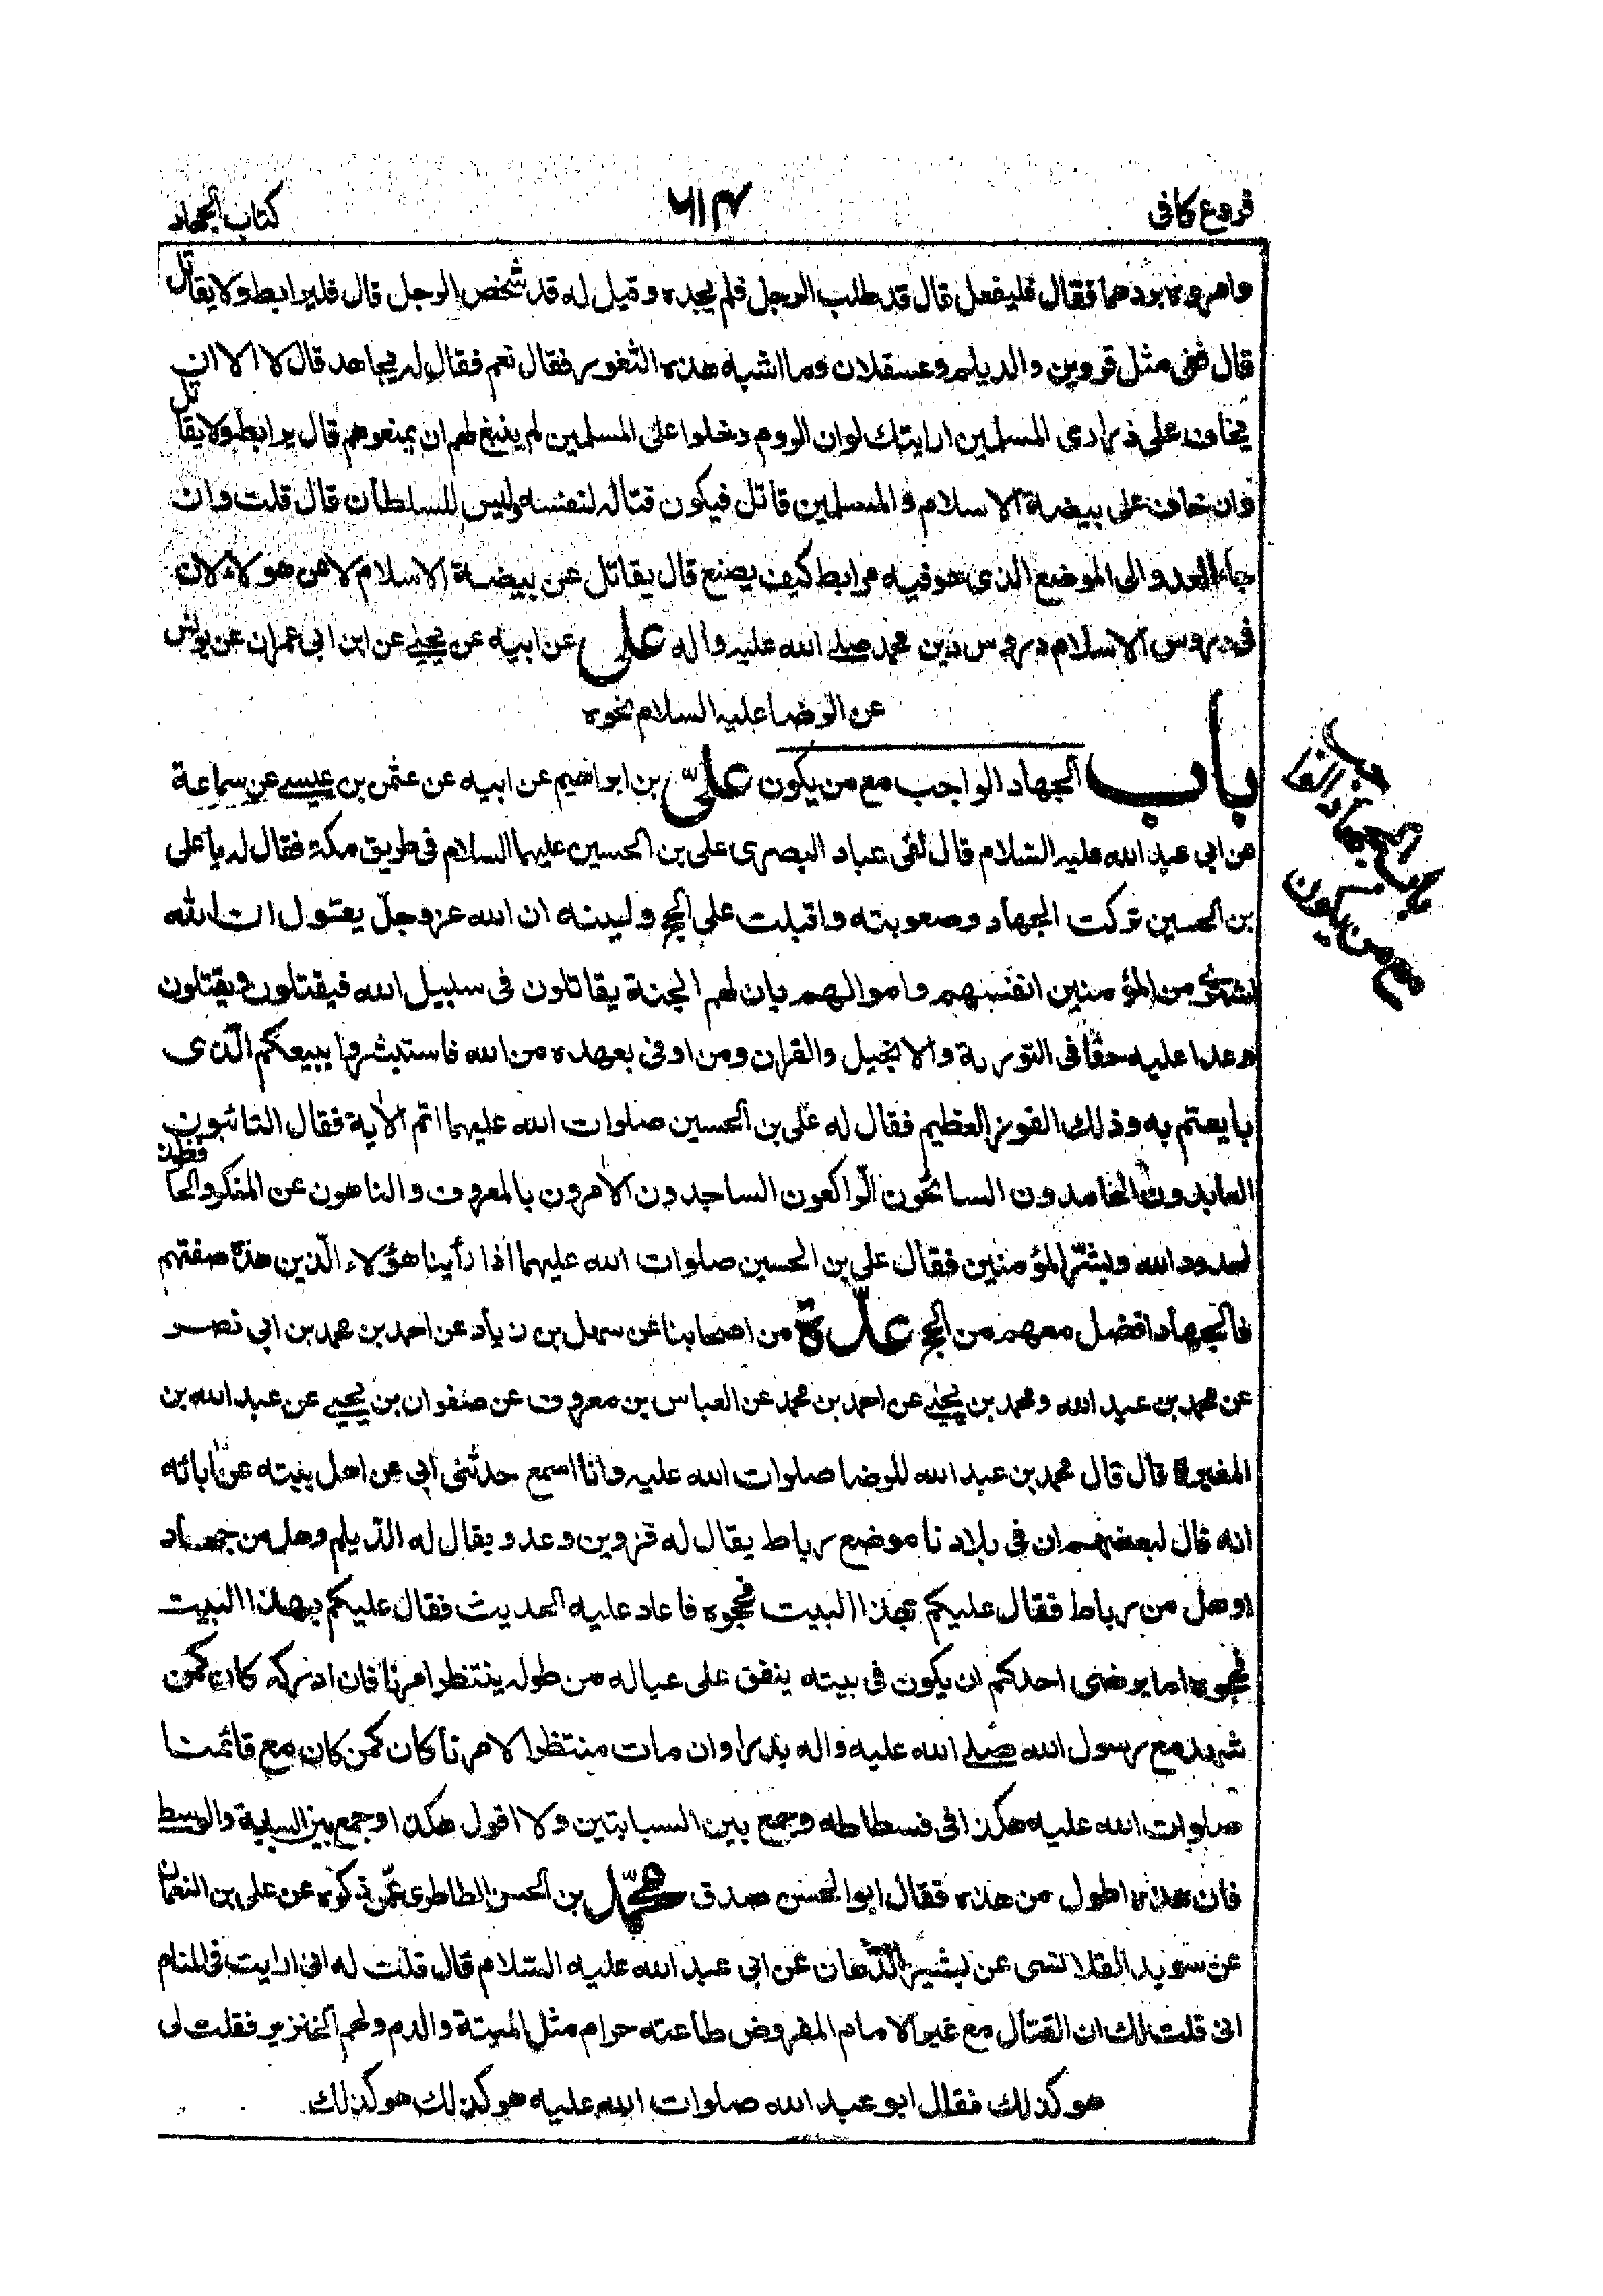 فروع كافى ٦١٣ كتاب الجهاد
وامروه بردهما فقال فليفعل قال قد طلب الرجل فلم يجده وقيل له قد شخص الرجل قال فليرابط ولا يقاتل
قال ففى مثل قزوين والديلم وعسقلان وما اشبه هذه الثغور فقال نعم فقال له يجاهد قال لا الا ان
يخاف على ذرارى المسلمين ارايتك لو ان الروم دخلوا على المسلمين لم ينبغ لهم ان يمنعوهم قال يرابط ولا يقاتل
وان خاف على بيضة الاسلام والمسلمين قاتل فيكون قتاله لنفسه وليس للسلطان قال قلت وان
جاء العدو الى الموضع الذى هو فيه مرابط كيف يصنع قال يقاتل عن بيضة الاسلام لا عن هولاء لان
فى دروس الاسلام دروس دين محمد صلى الله عليه واله على عن ابيه عن يحيى عن ابن ابى عمران عن يونس
عن الرضا عليه السلام نحوه
باب الجهاد الواجب مع من يكون علىّ بن ابراهيم عن ابيه عن عثمن بن عيسى عن سماعة
عن ابى عبد الله عليه السّلام قال لقى عباد البصرى على بن الحسين عليهما السلام فى طريق مكة فقال له يا على
بن الحسين تركت الجهاد وصعوبته واقبلت على الحج ولينه ان الله عز وجلّ يقول ان الله
اشترى من المؤمنين انفسهم واموالهم بان لهم الجنة يقاتلون فى سبيل الله فيقتلون ويقتلون
وعدا عليه حقّا فى التورية والانجيل والقران ومن اوفى بعهده من الله فاستبشروا ببيعكم الّذى
بايعتم به وذلك الفوز العظيم فقال له على بن الحسين صلوات الله عليهما اتم الاية فقال التائبون
العابدون الحامدون السائحون الرّاكعون الساجدون الامرون بالمعروف والناهون عن المنكر والحافظون
لحدود الله وبشّر المؤمنين فقال على بن الحسين صلوات الله عليهما اذا رأينا هؤلاء الّذين هذه صفتهم
فالجهاد افضل معهم من الحج عدّة من اصحابنا عن سهل بن زياد عن احمد بن محمد بن ابى نصر
عن محمد بن عبد الله ومحمد بن يحيى عن احمد بن محمد عن العباس بن معروف عن صفوان بن يحيى عن عبد الله بن
المغيرة قال قال محمد بن عبد الله للرضا صلوات الله عليه وانا اسمع حدثنى ابى عن اهل بيته عن ابائه
انه قال لبعضهم ان فى بلادنا موضع رباط يقال له قزوين وعدو يقال له الدّيلم وهل من جهاد
او هل من رباط فقال عليكم بهذا البيت فحجوه فاعاد عليه الحديث فقال عليكم بهذا البيت
فحجوه اما يرضى احدكم ان يكون فى بيته ينفق على عياله من طوله ينتظر امرنا فان ادركه كان كمن
شهد مع رسول الله صلى الله عليه واله بدرا وان مات منتظرا لامرنا كان كمن كان مع قائمنا
صلوات الله عليه هكذا فى فسطاطه وجمع بين السبابتين ولا اقول هكذا وجمع بين السبابة والوسطى
فان هذه اطول من هذه فقال ابو الحسن صدق محمّد بن الحسن الطاطرى عمّن ذكره عن على بن النعمان
عن سويد القلانسى عن بشير الدّهان عن ابى عبد الله عليه السّلام قال قلت له انى رايت فى المنام
انى قلت لك ان القتال مع غير الامام المفروض طاعته حرام مثل الميتة والدم ولحم الخنزير فقلت لى
هو كذلك فقال ابو عبد الله صلوات الله عليه هو كذلك هو كذلك
باب الجهاد الواجب
مع من يكون